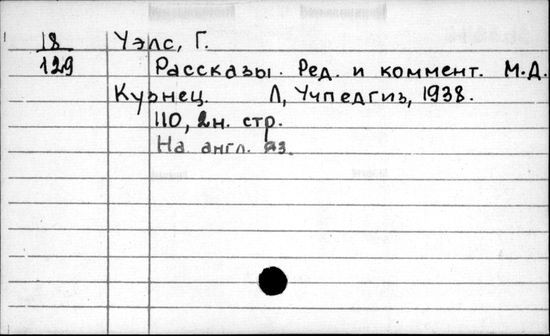 18 Уэлс, Г.
129 Рассказы. Ред. и коммент. М.Д.
Кузнец. Л, Учпедгиз, 1938.
110, 2н. стр.
На англ. яз.